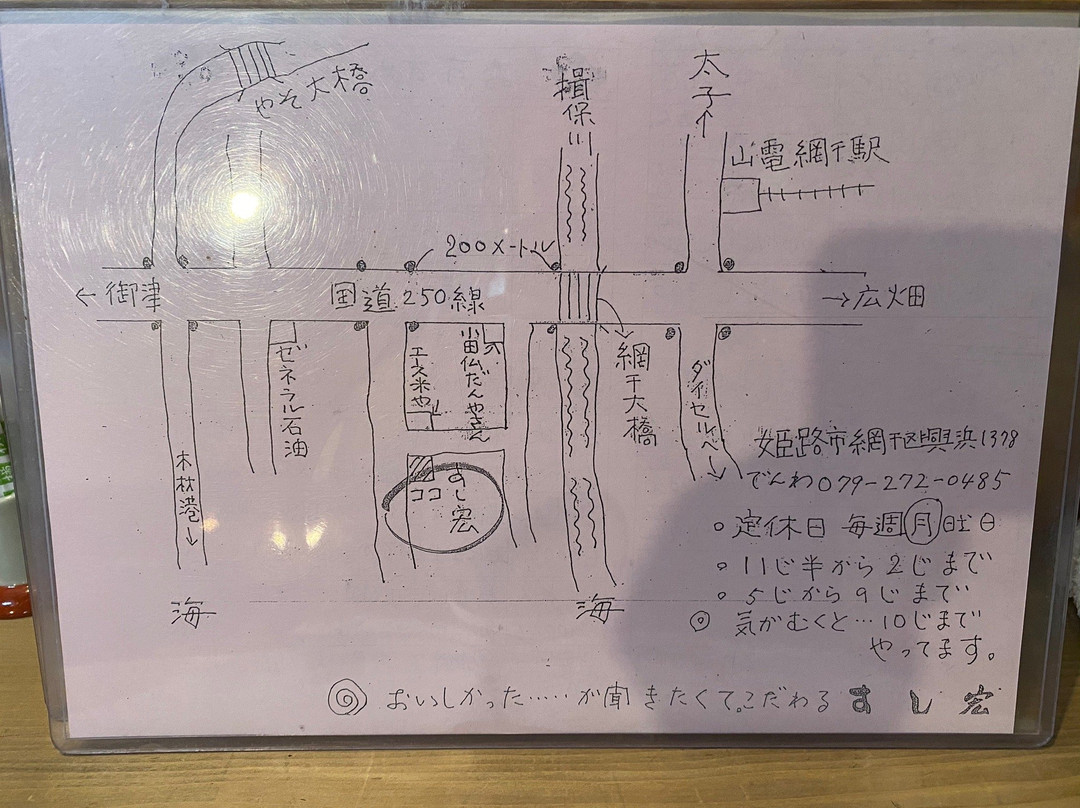 やそ大橋
揖保川
太子↑
山電網干駅
200メートル
←御津
国道250線
→広畑
ゼネラル石油
エース米や
小田仏だんやさん
網干大橋
ダイセルへ↓
木材港↓
ココ
すし宏
海
海
姫路市網干区興浜1378
でんわ079-272-0485
○定休日 毎週月曜日
○11じ半から2じまで
○5じから9じまで
◎気がむくと…10じまで
やってます。
◎おいしかった……が聞きたくて。こだわる すし宏